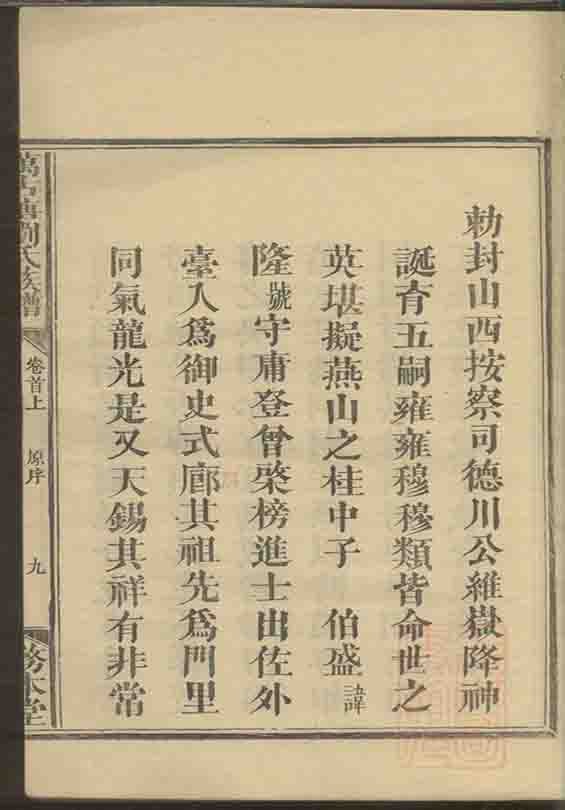 勅封山西按察司德川公維嶽降神
誕育五嗣雍雍穆穆類皆命世之
英堪擬燕山之桂中子 伯盛諱
隆號守庸登曾棨榜進士出佐外
臺入爲御史式廓其祖先爲門里
同氣龍光是又天錫其祥有非常
劉氏族譜
卷首上
原序
九
務本堂